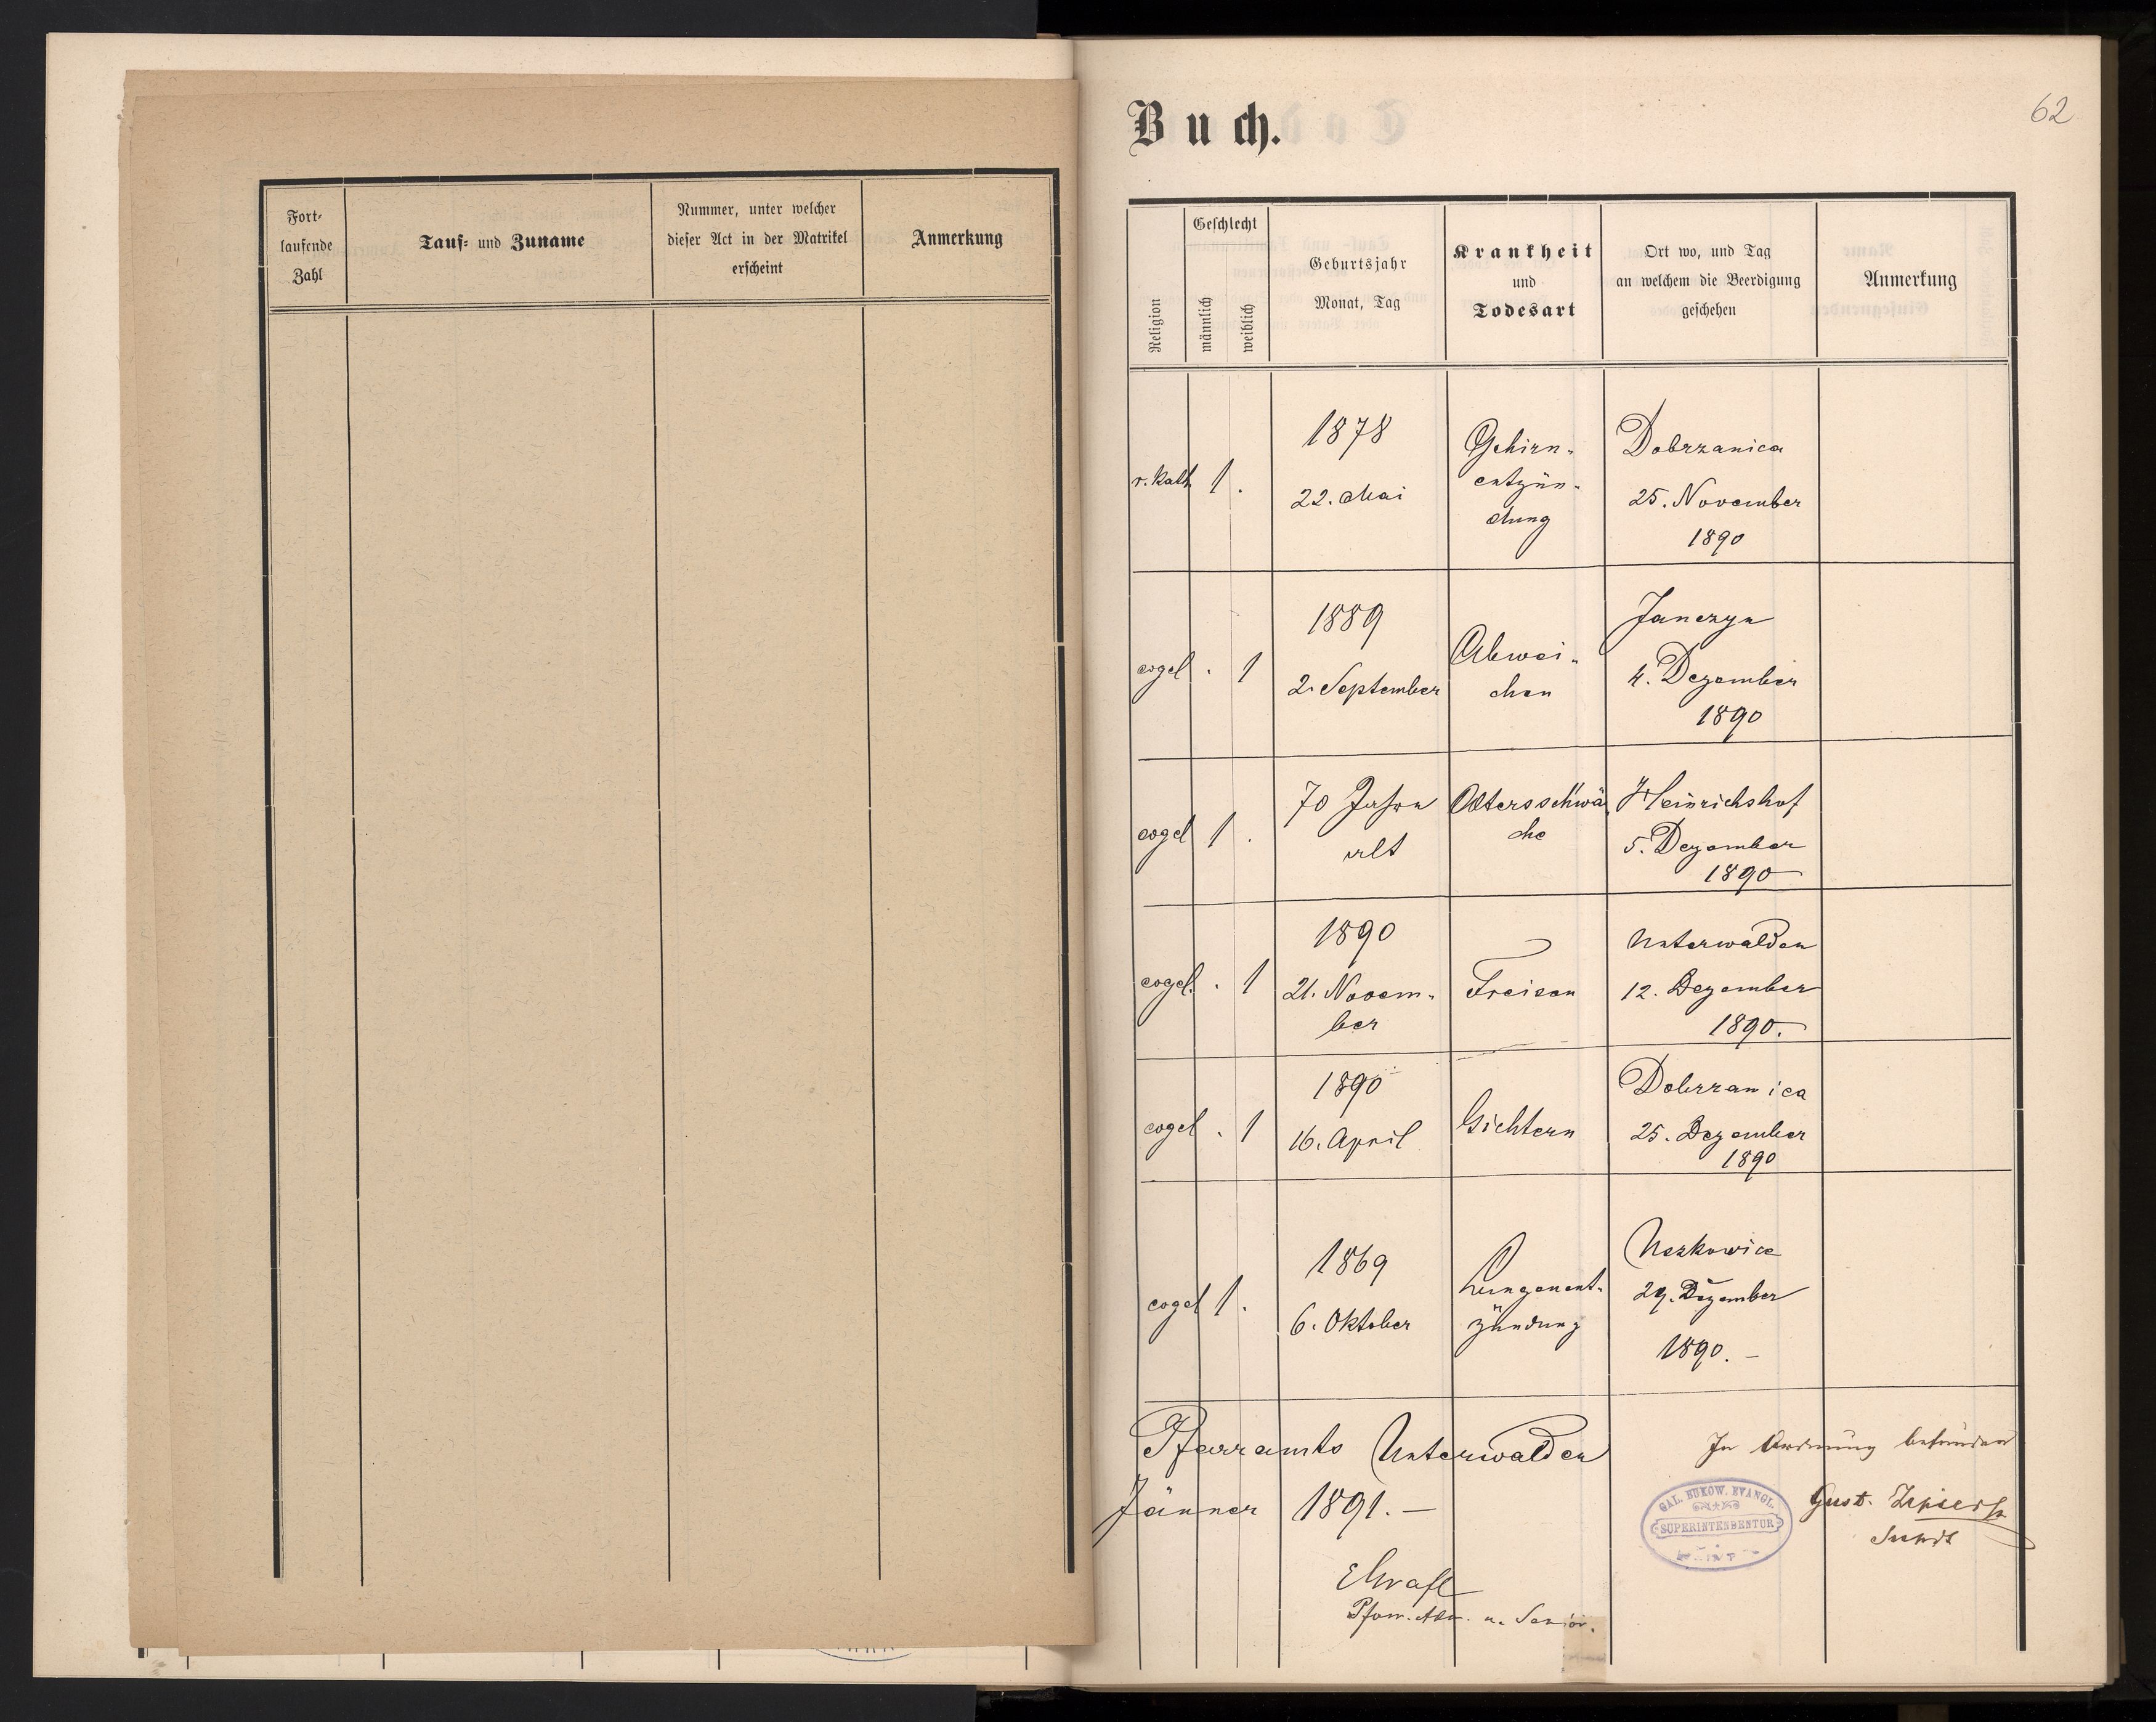 Fort-
laufende
Zahl
Tauf- und Zuname
Nummer, unter welcher
dieser Act in der Matrikel
erscheint
Anmerkung
62
Buch.
Religion
Geschlecht
männlich
weiblich
Geburtsjahr
Monat, Tag
Krankheit
und
Todesart
Ort wo, und Tag
an welchem die Beerdigung
geschehen
Anmerkung
r. kath
1 .
1878
22. Mai
Gehirn-
entzün-
dung
Dobrzanica
25. November
1890
evgel
. 1
1889
2. September
Abwei-
chen
Janczyn
4. Dezember
1890
evgel
1 .
70 Jahre
alt
Altersschwä
che
Heinrichshof
5. Dezember
1890
evgel.
. 1
1890
21. Novem-
ber
Freisen
Unterwalden
12. Dezember
1890.
evgel
. 1
1890
16. April
Gichtern
Dobrzanica
25. Dezember
1890
evgel
1 .
1869
6. Oktober
Lungenent-
zündung
Uszkowice
29. Dezember
1890. —
Pfarramts Unterwalden
Jänner 1891. —
In Ordnung befunden
GAL. BUKOW. EVANGL.
SUPERINTENDENTUR
Gust.
Supdt
Pfarr. Adm. u. Senior.